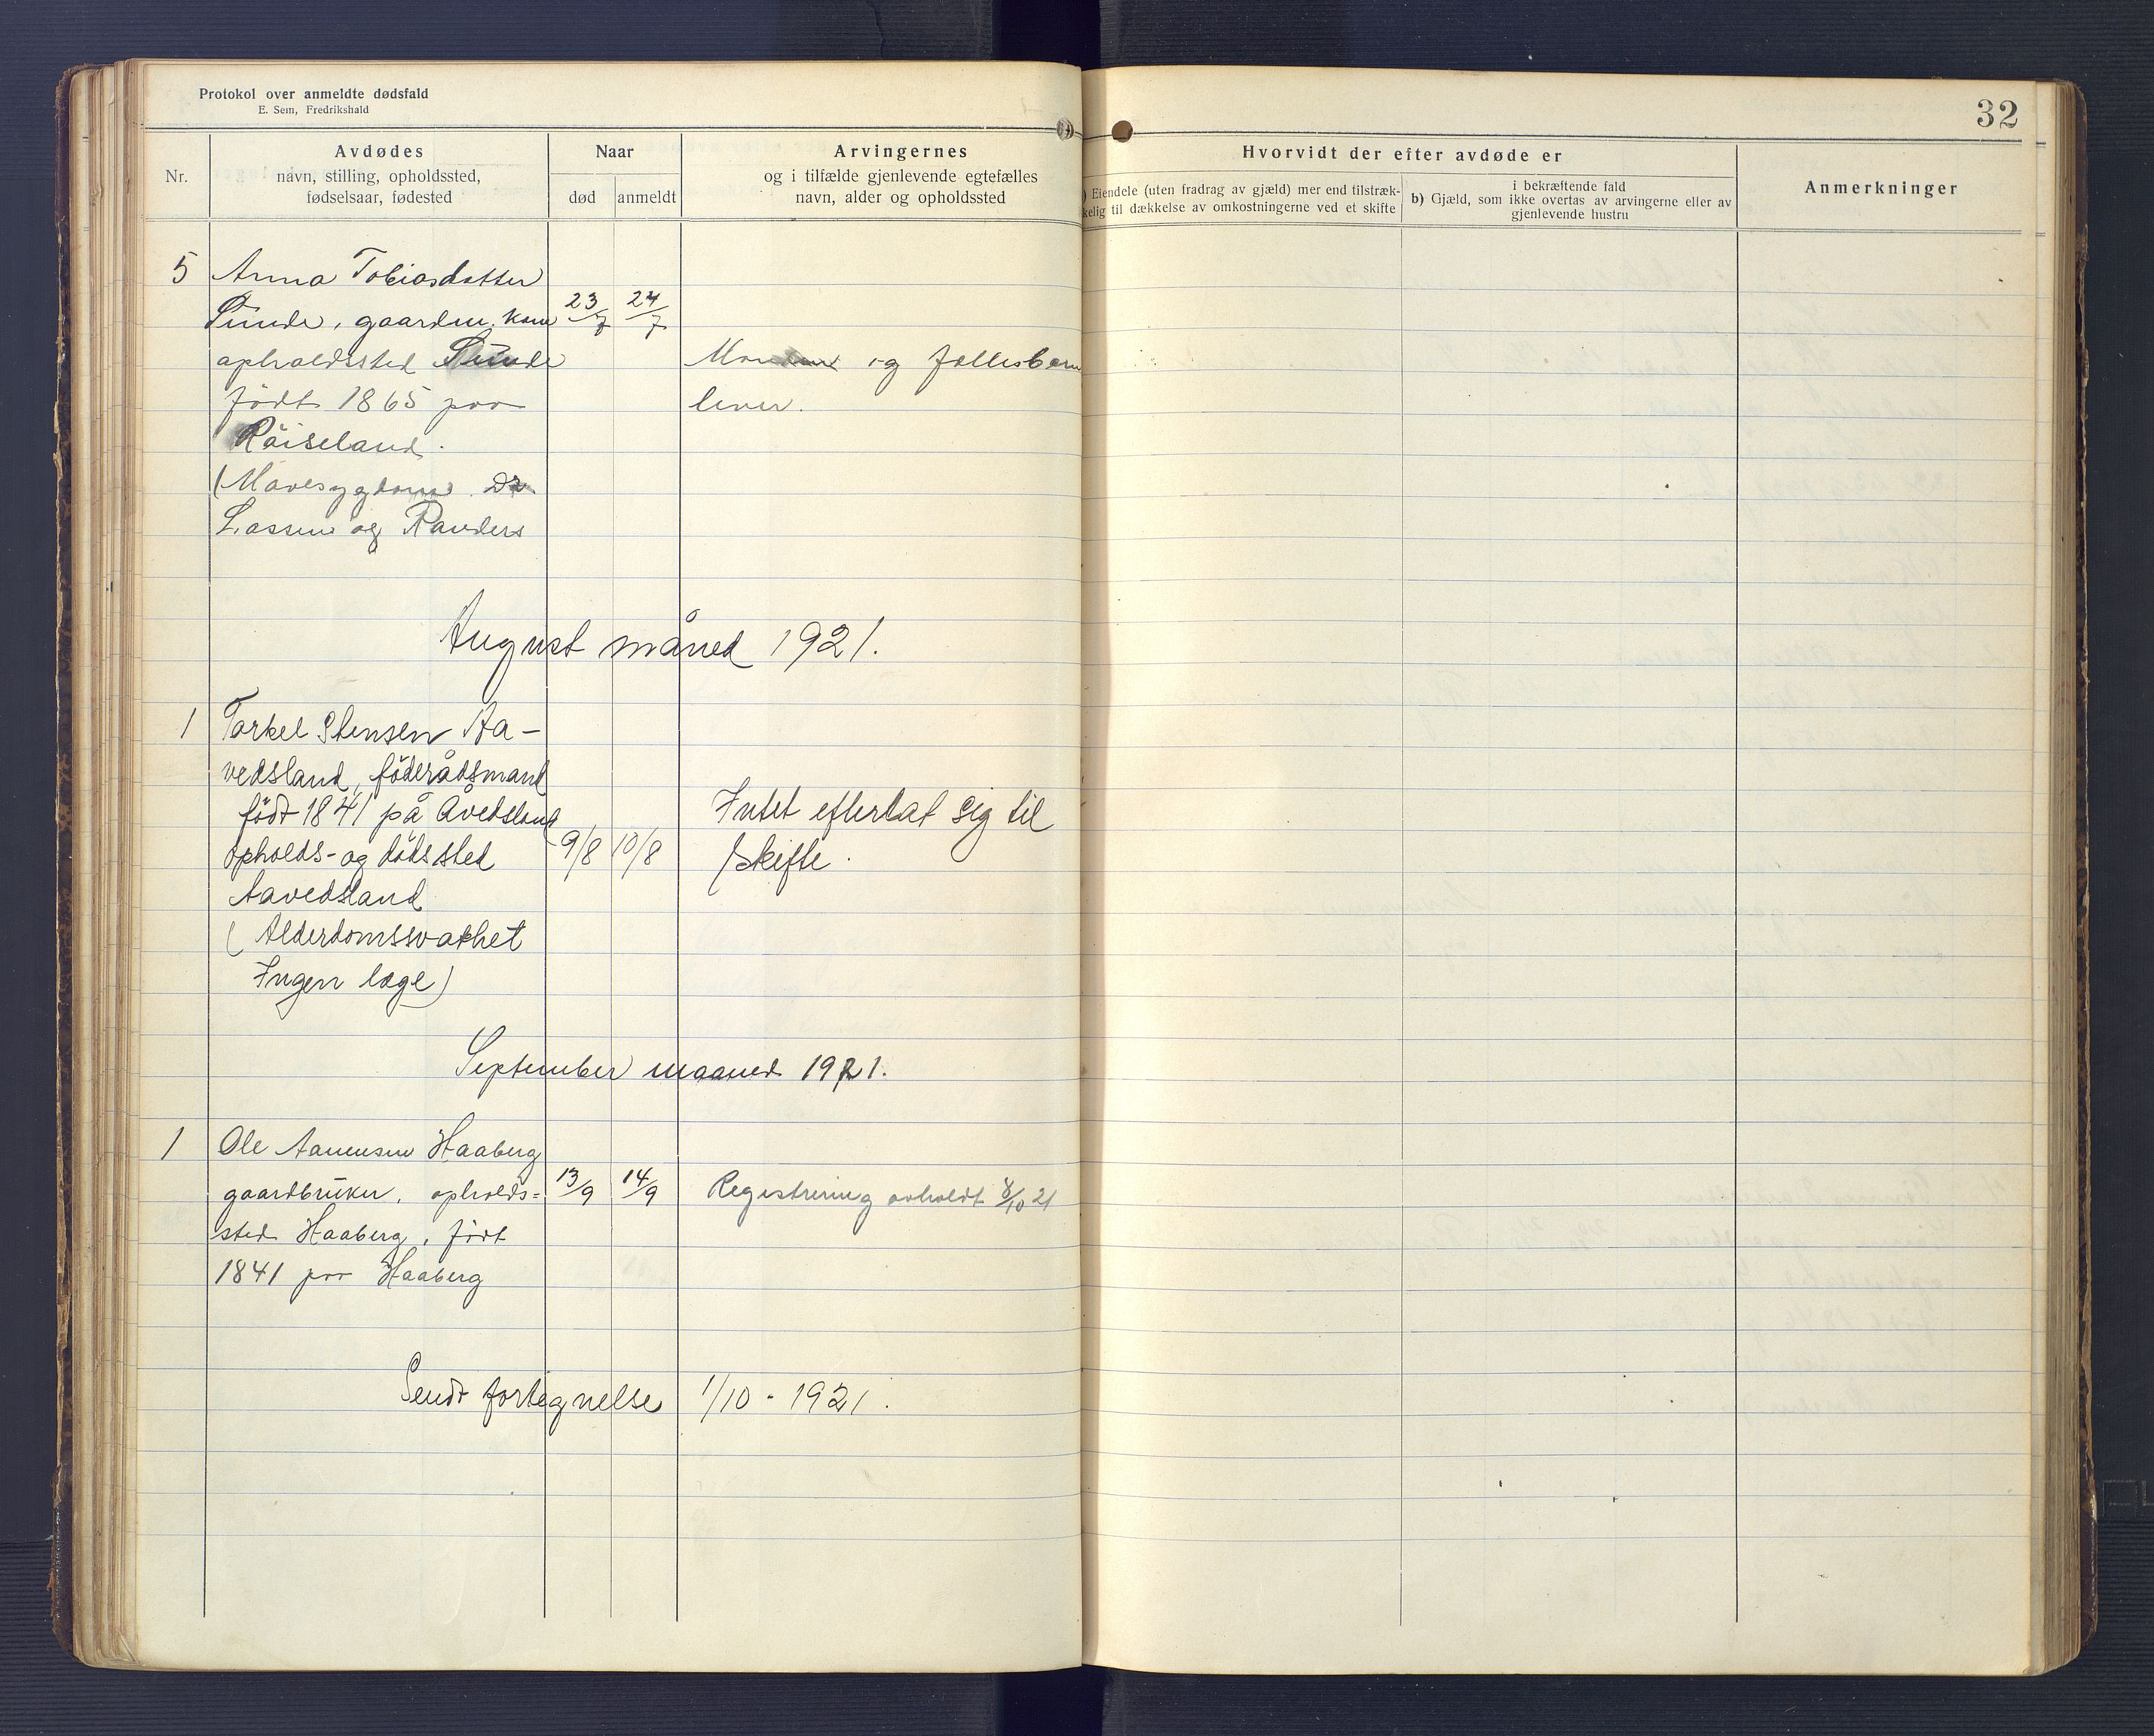 Protokol over anmeldte dødsfald
E. Sem, Fredrikshald
32
Nr.
Avdødes
navn, stilling, opholdssted,
fødselsaar, fødested
Naar
død
anmeldt
Arvingernes
og i tilfælde gjenlevende egtefælles
navn, alder og opholdssted
Hvorvidt der efter avdøde er
) Eiendele (uten fradrag av gjæld) mer end tilstræk-
kelig til dækkelse av omkostningerne ved et skifte
i bekræftende fald
b) Gjæld, som ikke overtas av arvingerne eller av
gjenlevende hustru
Anmerkninger
5 Anna Tobiasdatter
Sunde, gaardm. kone 23/7 24/7
opholdssted Sunde
født 1865 paa
Röiseland.
(Mavesygdom Dr.
Lassen og Randers
og fællesbarn
lever.
August måned 1921.
1 Torkel Stensen Aa-
vedsland, föderådsmand
födt 1841 på Åvedsland
opholds- og dödssted 9/8 10/8
Aavedsland
(Alderdomssvakhet
Ingen læge)
Intet efterlat sig til
skifte.
September maaned 1921.
1 Ole Aanensen Haaberg
gaardbruker, opholds= 13/9 14/9
sted Haaberg, født
1841 paa Haaberg
Registrering avholdt 8/10 21
Sendt fortegnelse 1/10 - 1921.